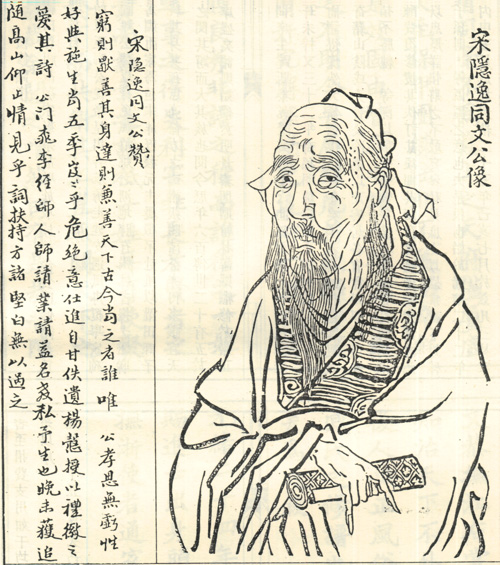 宋隱逸同文公像
宋隱逸同文公贊
窮則獨善其身達則兼善天下古今當之者誰唯 公孝思無虧性
好與施生當五季岌岌乎危絕意仕進自甘佚遺楊龍授以禮徵之
愛其詩 公門桃李經師人師請業請益名教私予生也晚未獲追
隨高山仰止情見乎詞扶持方諸堅白無以過之